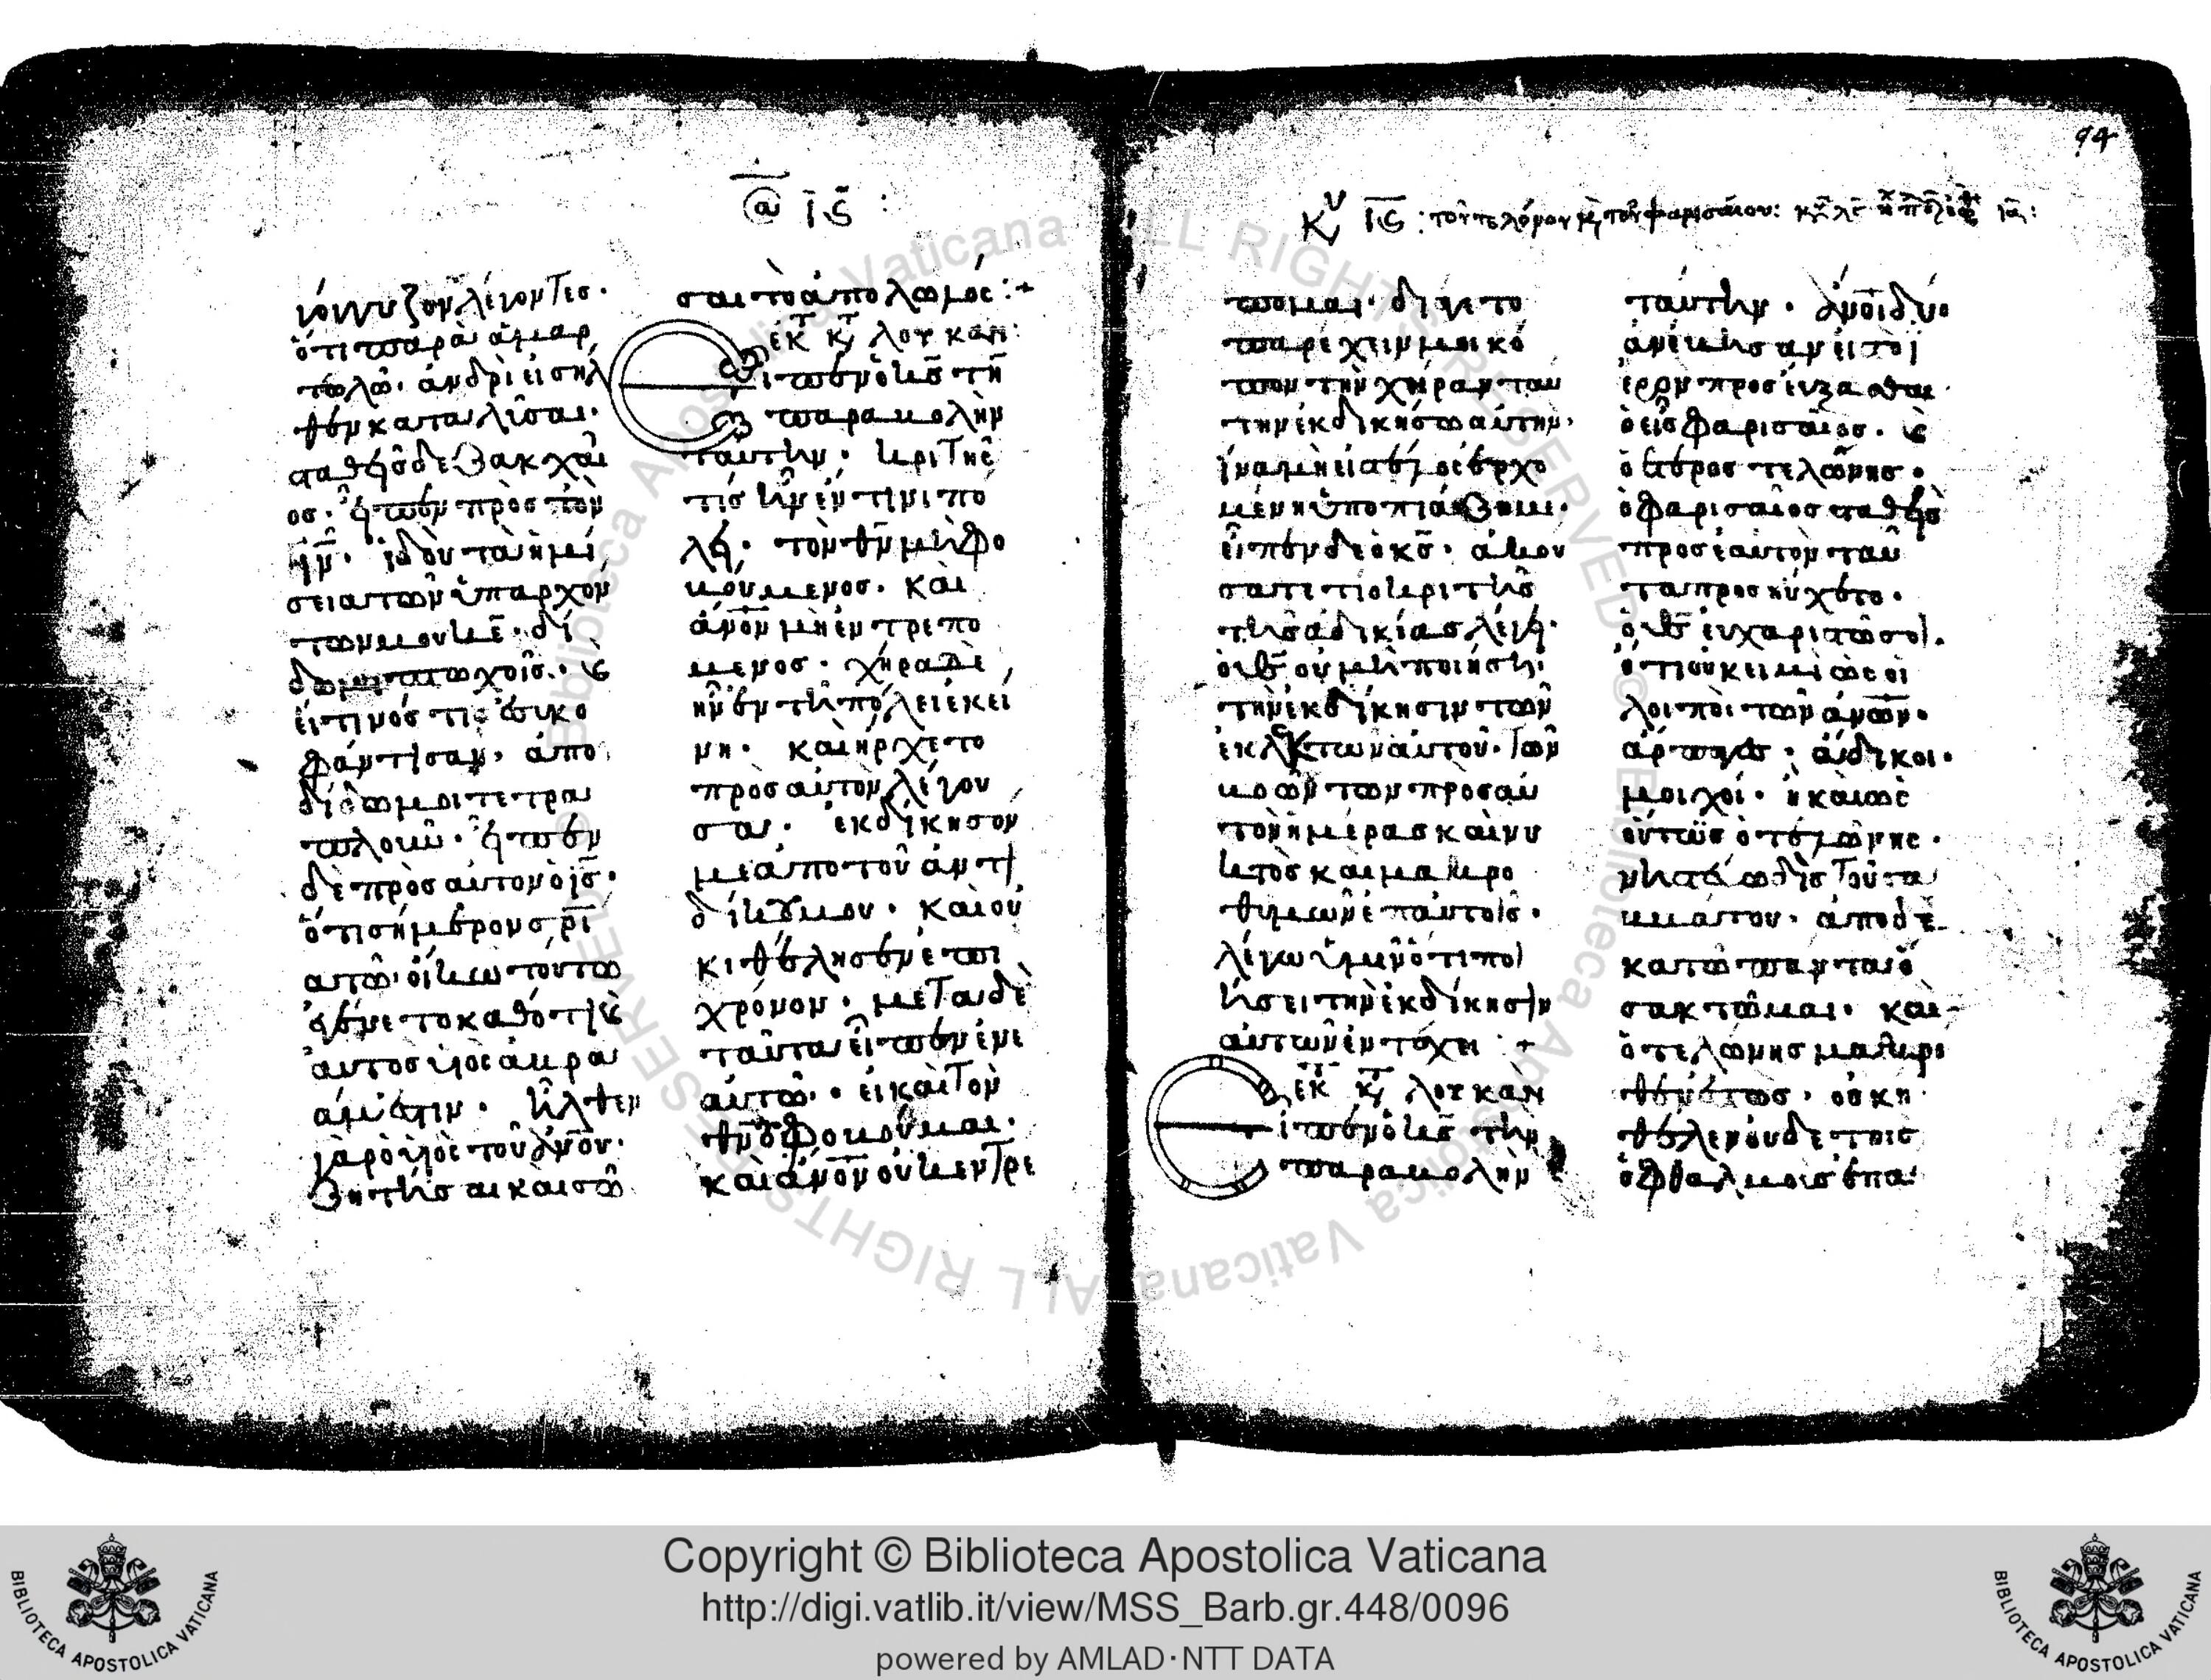 ϊς:
γόγγυζον λέγοντες·
ὅτι παρὰ ἁμαρ
τωλῶ· ἀνδρὶ εἰσῆλ
θεν καταλῦσαι·
σταθεὶς δὲ ζακχαῖ
ος· εἶπεν πρὸς τὸν
ιν̄· ἰδοὺ τὰ ἡμί
σει αυτῶν ὑπαρχόν
των μου κ̄ε· δί
δωμι πτωχοῖς· καὶ
εἴ τινός τι ἐσυκο
φάντησαν· ἀπο
δίδωμοι τετρα
πλοῦν· εἶπεν
δὲ πρὸς αὐτὸν ὁ ις̄·
ὅτι σήμερον σρι
α τῶ οἴκω τούτω
ἐγένετο καθότι καὶ
αὐτὸς υἱὸς ἀβρα
ἁμ ἐστιν· ἦλθεν
γὰρ ὁ υἱὸς τοῦ ἀνον·
ζητῆσαι καὶ σῶ
σαι τὸ ἀπολωλός:+
ἐκ τ κτ λουκᾶν:
Εἶπεν ὁ κς̄ τὴν
παραβολὴν
ταύτην· κριτής
τις ἦν ἔν τινι πό
λει· τὸν θν̄ μὴ φο
βούμενος· καὶ
ἄνον μὴ ἐντρεπό
μενος· χήρα δὲ
ἦν ἐν τῆ πόλει ἐκεί
νη· καὶ ἤρχετο
πρὸς αὐτὸν λέγου
σα· ἐκδίκησόν
με ἀπὸ τοῦ ἀντι
δίκου μου· καὶ οὐ
κ ἠθέλησεν ἐπὶ
χρόνον· μετὰ δὲ
ταῦτα εἶπεν ἐν ἑ
αυτῶ· εἰ καὶ τὸν
θν̄ οὐ φοβοῦμαι·
καὶ ἄνον οὐκ ἐντρέ
94
Κυ ϊς: τοῦ τελώνου καὶ τοῦ φαρισαίου:
πομαι· διά γε τὸ
παρέχειν μοι κό
πον τὴν χήραν ταύ
την ἐκδικήσω αὐτήν·
ἵνα μὴ εἰς τέλος ἐρχο
μένη ὑποπιάζη με·
εἶπεν δὲ ὁ κς̄· ἀκού
σατε τί ὁ κριτὴς
τῆς ἀδικίας λέγει·
ὁ θς̄ οὐ μὴ ποιήση·
τὴν ἐκδίκησιν τῶν
ἐκλεκτων αὐτοῦ· τῶν
βοών των πρὸς αὐ
τὸν ἡμέρας καὶ νυ
κτὸς καὶ μακρο
θυμῶν ἐπ αὐτοῖς·
λέγω ὑμῖν ὅτι ποι
ήσει τὴν ἐκδίκησιν
αὐτῶν ἐν τάχει:+
ἐκ τ κτ λουκᾶν
Εἶπεν ὁ κς̄ τὴν
παραβολὴν
ταύτην· ἄνοι δύο
ἀνέβησαν εἰς τὸ
ἱερὸν προσεύξασθαι·
ὁ εἷς φαρισαῖος· καὶ
ὁ ἕτερος τελώνης·
ὁ φαρισαῖος σταθεὶς
πρὸς ἑαυτὸν ταῦ
τα προσηύχετο·
ὁ θς̄ εὐχαριστῶ σοι·
ὅτι οὐκ εἰμὶ ὡς οἱ
λοιποὶ τῶν ἀνων·
ἅρπαγες· ἄδικοι·
μοιχοί· ἢ καὶ ὡς
οὗτος ὁ τελώνης·
νηστεύω δὶς τοῦ σα
ββάτου· ἀποδε
κατῶ πάντα ὅ
σα κτῶμαι· καὶ
ὁ τελώνης μακρό
θεν ἑστὼς· οὐκ ἤ
θελεν οὐδὲ τοὺς
ὀφθαλμοὺς ἐπᾶ
Copyright © Biblioteca Apostolica Vaticana
http://digi.vatlib.it/view/MSS_Barb.gr.448/0096
powered by AMLAD·NTT DATA
BIBLIOTECA APOSTOLICA VATICANA
BIBLIOTECA APOSTOLICA VATICANA